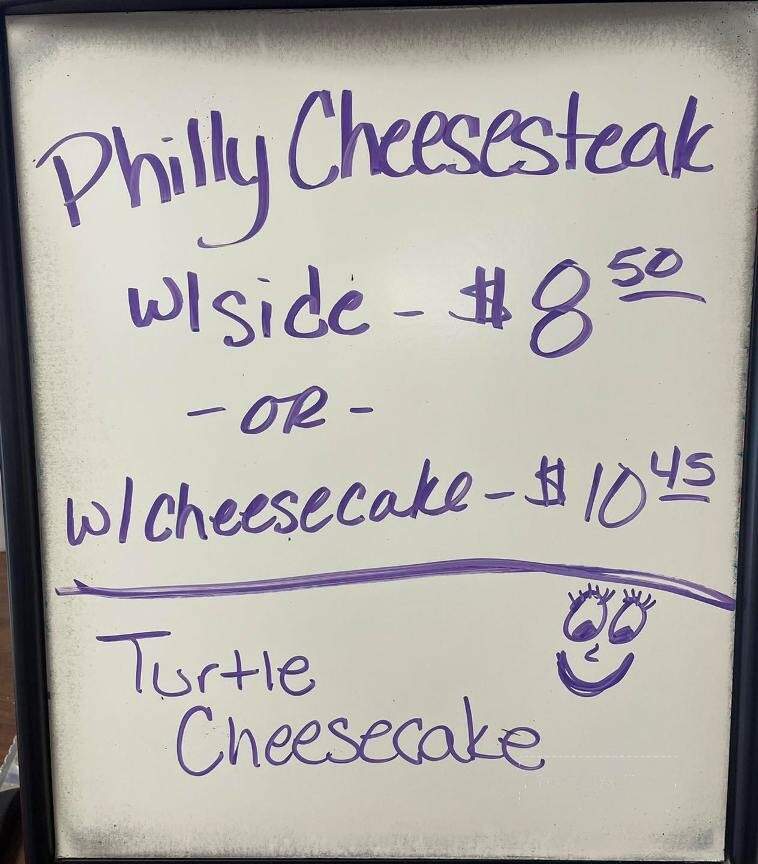 Philly Cheesesteak
w/side - $8 50
- OR -
w/cheesecake - $10 45
Turtle
Cheesecake